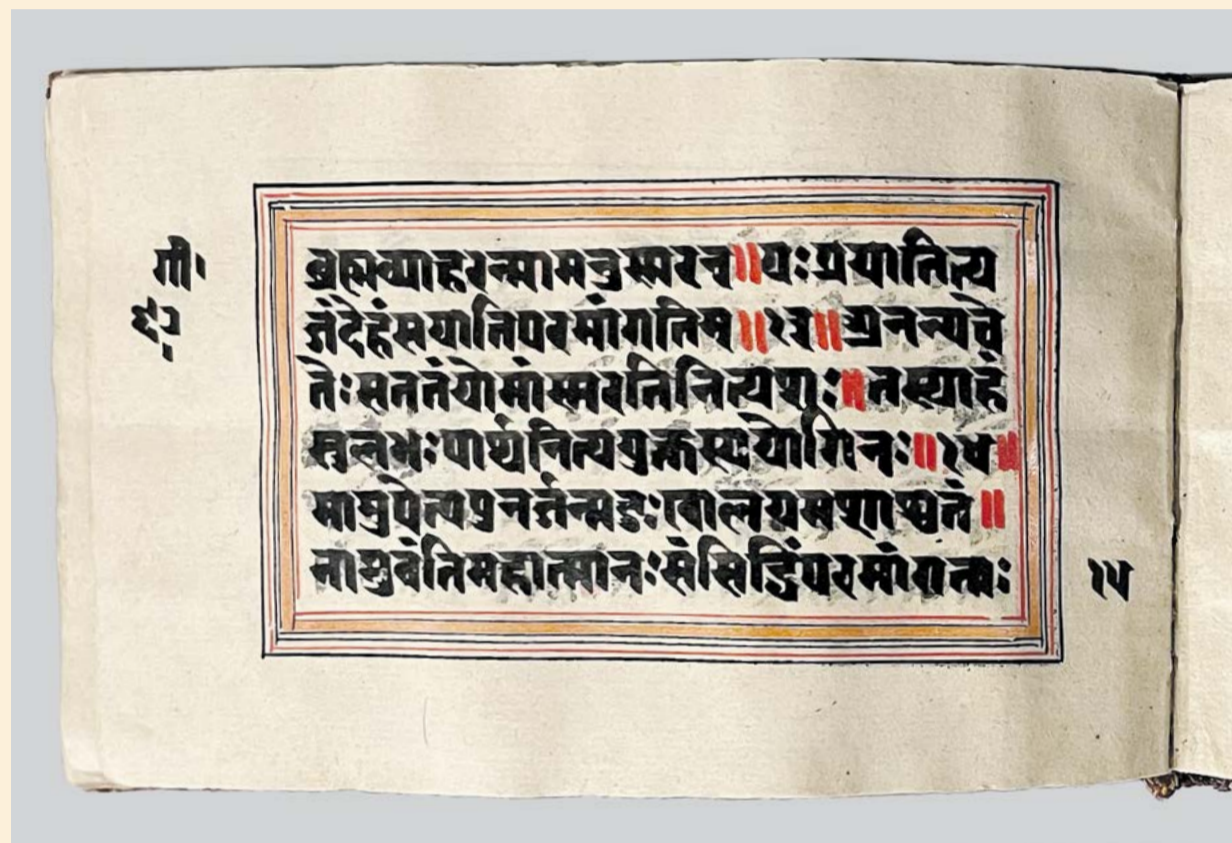 गी॰
ब्रह्मव्याहरन्मामनुस्मरन्॥यःप्रयातित्य
जंदेहंसयातिपरमांगतिम्॥१३॥अनन्यचे
तेःसततंयोमांस्मरतिनित्यशः॥तस्याहं
सुलभःपार्थनित्ययुक्तस्ययोगिनः॥१४॥
मामुपेत्यपुनर्जन्मदुःखालयमशाश्वतं॥
नाप्नुवंतिमहात्मानःसंसिद्धिंपरमांगताः
१५